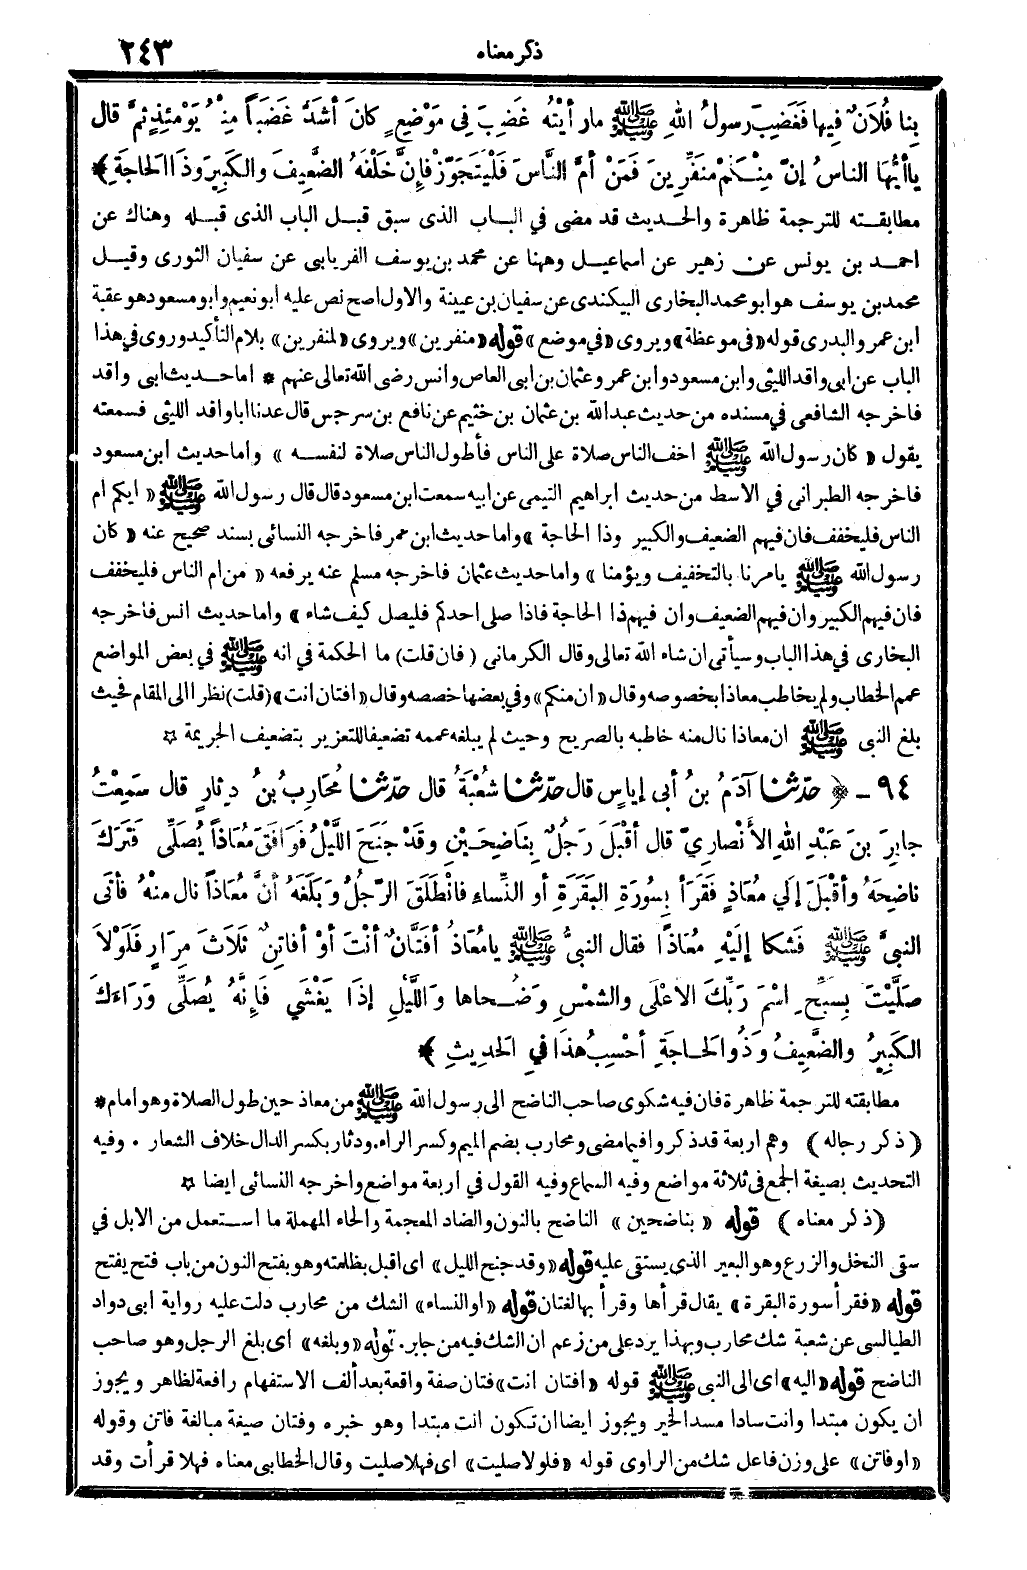 ذكر معناه
٢٤٣
بِنا فُلَانٌ فِيها فَغَضِبَ رسولُ اللهِ ﷺ مارأيْتُهُ غَضِبَ فِى مَوْضِعٍ كانَ أشَدَّ غَضَباً مِنْهُ يَوْمَئِذٍ ثمَّ قال
ياأيُّها الناسُ إنَّ مِنْكمْ مُنَفِّرِينَ فَمَنْ أمَّ النَّاسَ فَلْيَتَجَوَّزْ فإنَّ خَلْفَهُ الضَّعِيفَ والكَبِيرَ وَذَا الحَاجَةِ ﴾
مطابقته للترجمة ظاهرة والحديث قد مضى في الباب الذى سبق قبل الباب الذى قبله وهناك عن
احمد بن يونس عن زهير عن اسماعيل وههنا عن محمد بن يوسف الفريابى عن سفيان الثورى وقيل
محمد بن يوسف هو ابو محمد البخارى البيكندى عن سفيان بن عيينة والاول اصح نص عليه ابو نعيم وابو مسعود هو عقبة
ابن عمرو البدرى قوله «فى موعظة» ويروى «في موضع» قوله «منفرين» ويروى «لمنفرين» بلام التأكيد وروى في هذا
الباب عن ابى واقد الليثى وابن مسعود وابن عمر وعثمان بن ابى العاص وانس رضى الله تعالى عنهم * اما حديث ابى واقد
فاخرجه الشافعى في مسنده من حديث عبد الله بن عثمان بن خثيم عن نافع بن سرجس قال عدنا ابا واقد الليثى فسمعته
يقول « كان رسول الله ﷺ اخف الناس صلاة على الناس فأطول الناس صلاة لنفسه » واما حديث ابن مسعود
فاخرجه الطبرانى في الاسط من حديث ابراهيم التيمى عن ابيه سمعت ابن مسعود قال قال رسول الله ﷺ « ايكم ام
الناس فليخفف فان فيهم الضعيف والكبير وذا الحاجة » واما حديث ابن عمر فاخرجه النسائى بسند صحيح عنه « كان
رسول الله ﷺ يامرنا بالتخفيف ويؤمنا » واما حديث عثمان فاخرجه مسلم عنه يرفعه « من ام الناس فليخفف
فان فيهم الكبير وان فيهم الضعيف وان فيهم ذا الحاجة فاذا صلى احدكم فليصل كيف شاء » واما حديث انس فاخرجه
البخارى في هذا الباب وسيأتى ان شاء الله تعالى وقال الكرمانى ( فان قلت ) ما الحكمة في انه ﷺ في بعض المواضع
عمم الخطاب ولم يخاطب معاذا بخصوصه وقال « ان منكم » وفي بعضها خصصه وقال « افتان انت » ( قلت ) نظرا الى المقام فحيث
بلغ النبى ﷺ ان معاذا نال منه خاطبه بالصريح وحيث لم يبلغه عممه تضعيفا للتعزير بتضعيف الجريمة ☆
٩٤ - ﴿ حدّثنا آدَمُ بنُ أبى إياسٍ قال حدّثنا شُعْبَةُ قال حدّثنا مُحَارِبُ بنُ دِثارٍ قال سَمِعْتُ
جابِرَ بنَ عَبْدِ اللهِ الأنْصاريَّ قال أقْبَلَ رَجُلٌ بِنَاضِحَيْنِ وقَدْ جَنَحَ اللَّيْلُ فَوَافَقَ مُعَاذاً يُصَلِّى فَتَرَكَ
ناضِحَهُ وأقْبَلَ إلي مُعَاذٍ فَقَرَأ بِسُورَةِ البَقَرَةِ أوِ النِّساءِ فانْطَلَقَ الرَّجُلُ وَبَلَغَهُ أنَّ مُعَاذاً نال مِنْهُ فأتَى
النبىَّ ﷺ فَشَكا إلَيْهِ مُعَاذًا فقال النبىُّ ﷺ يامُعَاذُ أفَتَّانٌ أنْتَ أوْ أفاتِنٌ ثَلَاثَ مِرَارٍ فَلَوْلاَ
صَلَّيْتَ بِسَبِّحِ اسْمَ رَبِّكَ الاعْلَى والشَّمْسِ وَضُحاها وَاللَّيْلِ إذَا يَغْشَي فَإِنَّهُ يُصَلِّى وَرَاءَكَ
الكَبِيرُ والضَّعِيفُ وَذُو الحَاجَةِ أحْسِبُ هذَا فِي الحَدِيثِ ﴾
مطابقته للترجمة ظاهرة فان فيه شكوى صاحب الناضح الى رسول الله ﷺ من معاذ حين طول الصلاة وهو امام *
( ذكر رجاله ) وهم اربعة قد ذكروا فيما مضى ومحارب بضم الميم وكسر الراء. ودثار بكسر الدال خلاف الشعار . وفيه
التحديث بصيغة الجمع فى ثلاثة مواضع وفيه السماع وفيه القول في اربعة مواضع واخرجه النسائى ايضا ☆
( ذكر معناه ) قوله « بناضحين » الناضح بالنون والضاد المعجمة والحاء المهملة ما استعمل من الابل في
سقى النخل والزرع وهو البعير الذى يستقى عليه قوله « وقد جنح الليل » اى اقبل بظلمته وهو بفتح النون من باب فتح يفتح
قوله « فقرأ سورة البقرة » يقال قرأها وقرأ بها لغتان قوله « او النساء » الشك من محارب دلت عليه رواية ابى دواد
الطيالسى عن شعبة شك محارب وبهذا يرد على من زعم ان الشك فيه من جابر. قوله « وبلغه » اى بلغ الرجل وهو صاحب
الناضح قوله « اليه » اى الى النبى ﷺ قوله « افتان انت » فتان صفة واقعة بعد ألف الاستفهام رافعة لظاهر ويجوز
ان يكون مبتدا وانت سادا مسد الخبر ويجوز ايضا ان تكون انت مبتدا وهو خبره وفتان صيغة مبالغة فاتن وقوله
« او فاتن » على وزن فاعل شك من الراوى قوله « فلولا صليت » اى فهلا صليت وقال الخطابى معناه فهلا قرأت وقد